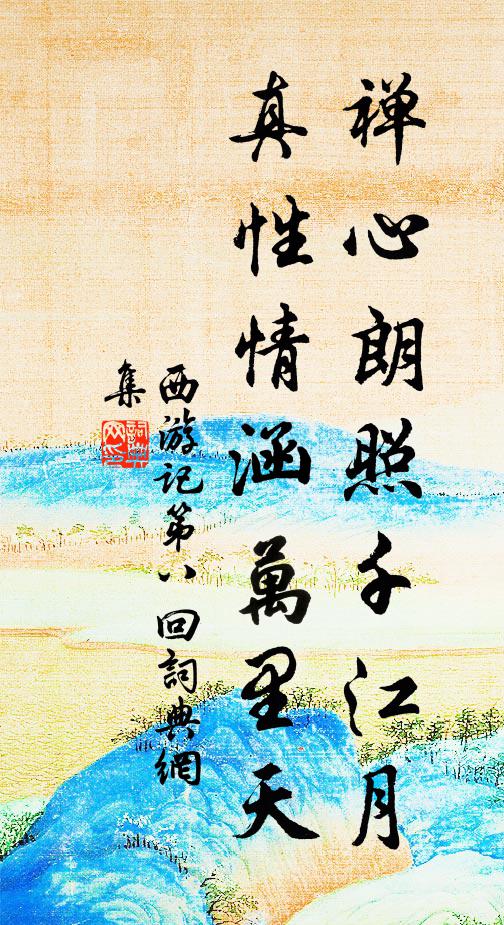 禅心朗照千江月
真性情涵萬里天
西游记第八回詞典網
集